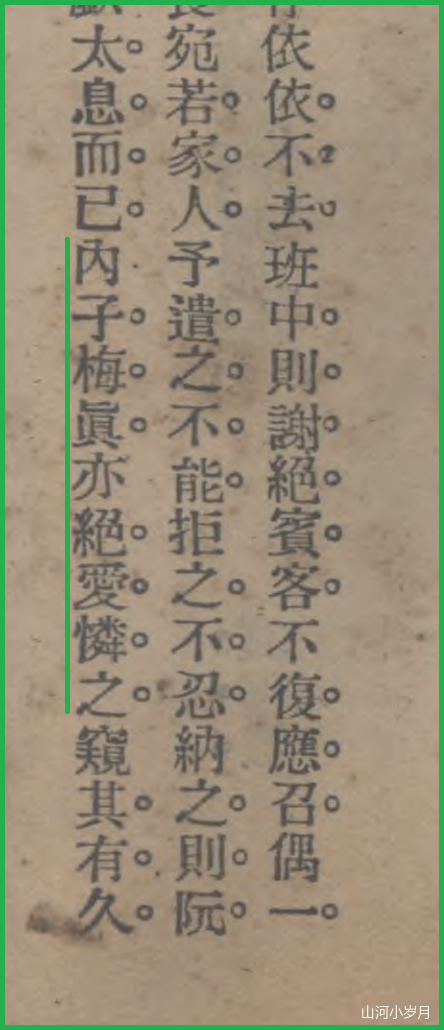 依依不去班中則謝絕賓客不復應召偶一
宛若家人予遣之不能拒之不忍納之則阮
太息而已內子梅眞亦絕愛憐之窺其有久
山河小岁月